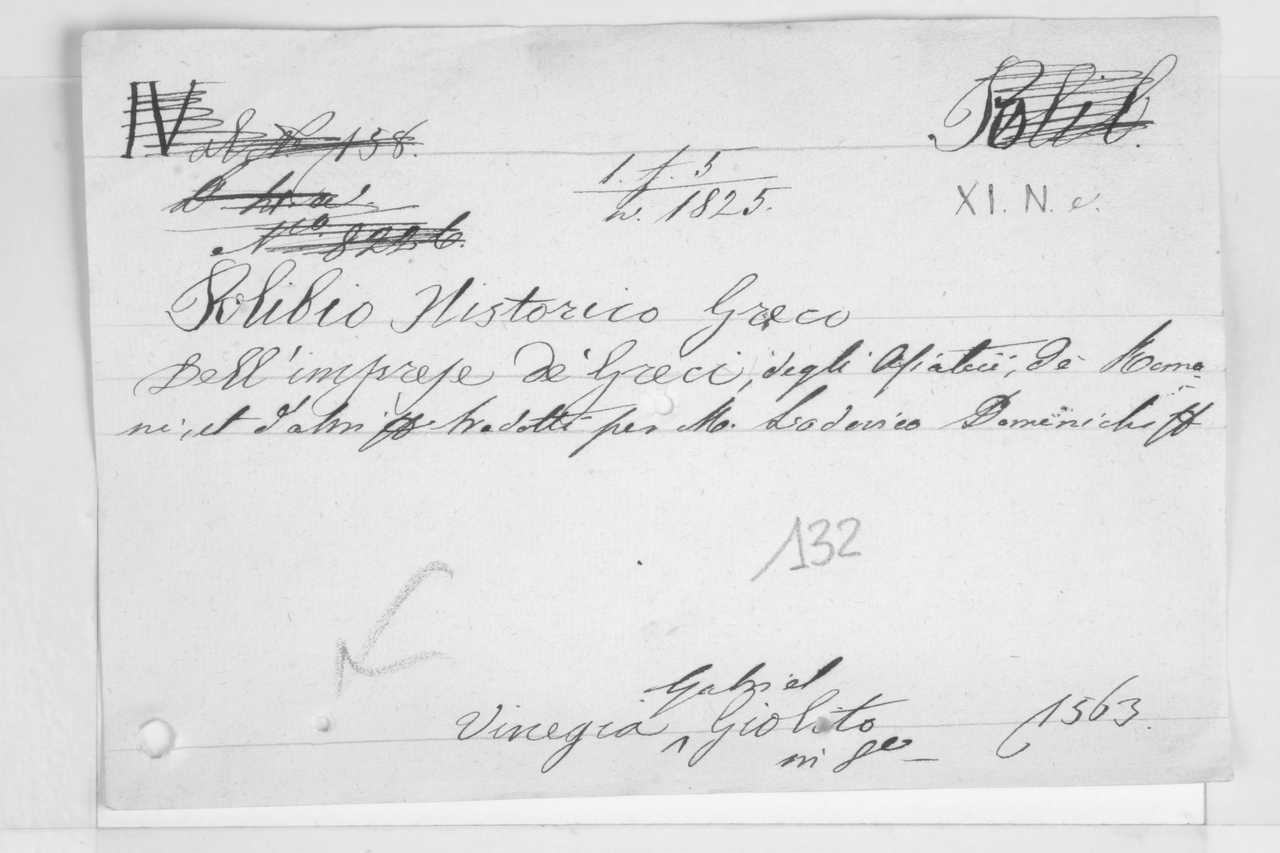 IV
158.
Polib.
1. f. 5
n. 1825.
XI. N. e.
Nro.
Polibio Historico Greco
Dell'imprese de' Greci, degli Asiatici, de Roma-
ni, et d'altri tradotti per M. Lodovico Domenichi
132
Gabriel
Vinegia Giolito 1563.
in 8o